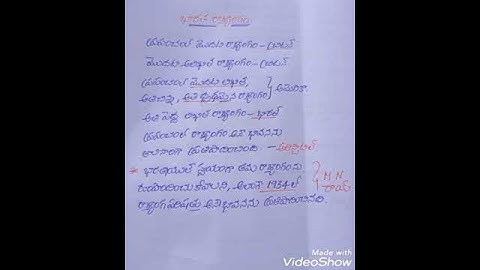 భారత రాజ్యాంగం
ప్రపంచంలో మొదట రాజ్యాంగం - బ్రిటన్
మొదట అలిఖిత రాజ్యాంగం - బ్రిటన్
ప్రపంచంలో మొదట లిఖిత,
అతిచిన్న, అతి దృఢమైన రాజ్యాంగం } అమెరికా
అతి పెద్ద లిఖిత రాజ్యాంగం - భారత్
ప్రపంచంలో రాజ్యాంగం అనే భావనను
ప్రతిపాదించింది - అరిస్టాటిల్
* భారతీయులే స్వయంగా తమ రాజ్యాంగంను
రూపొందించు కోవాలని, అలాగే 1934 లో
రాజ్యాంగ పరిషత్తు అనే భావనను ప్రతిపాదించినది. } M N రాయ్
Made with
VideoShow